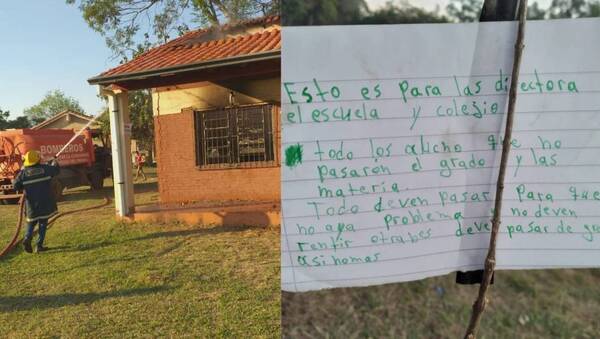 BOMBEROS
Esto es para las directora
el escuela y colejio
todo los alucho que no
pasaron el grado y las
materia.
Todo deven pasar Para que
no aya problema no deven
rentir otrabes deven pasar de
asi nomas